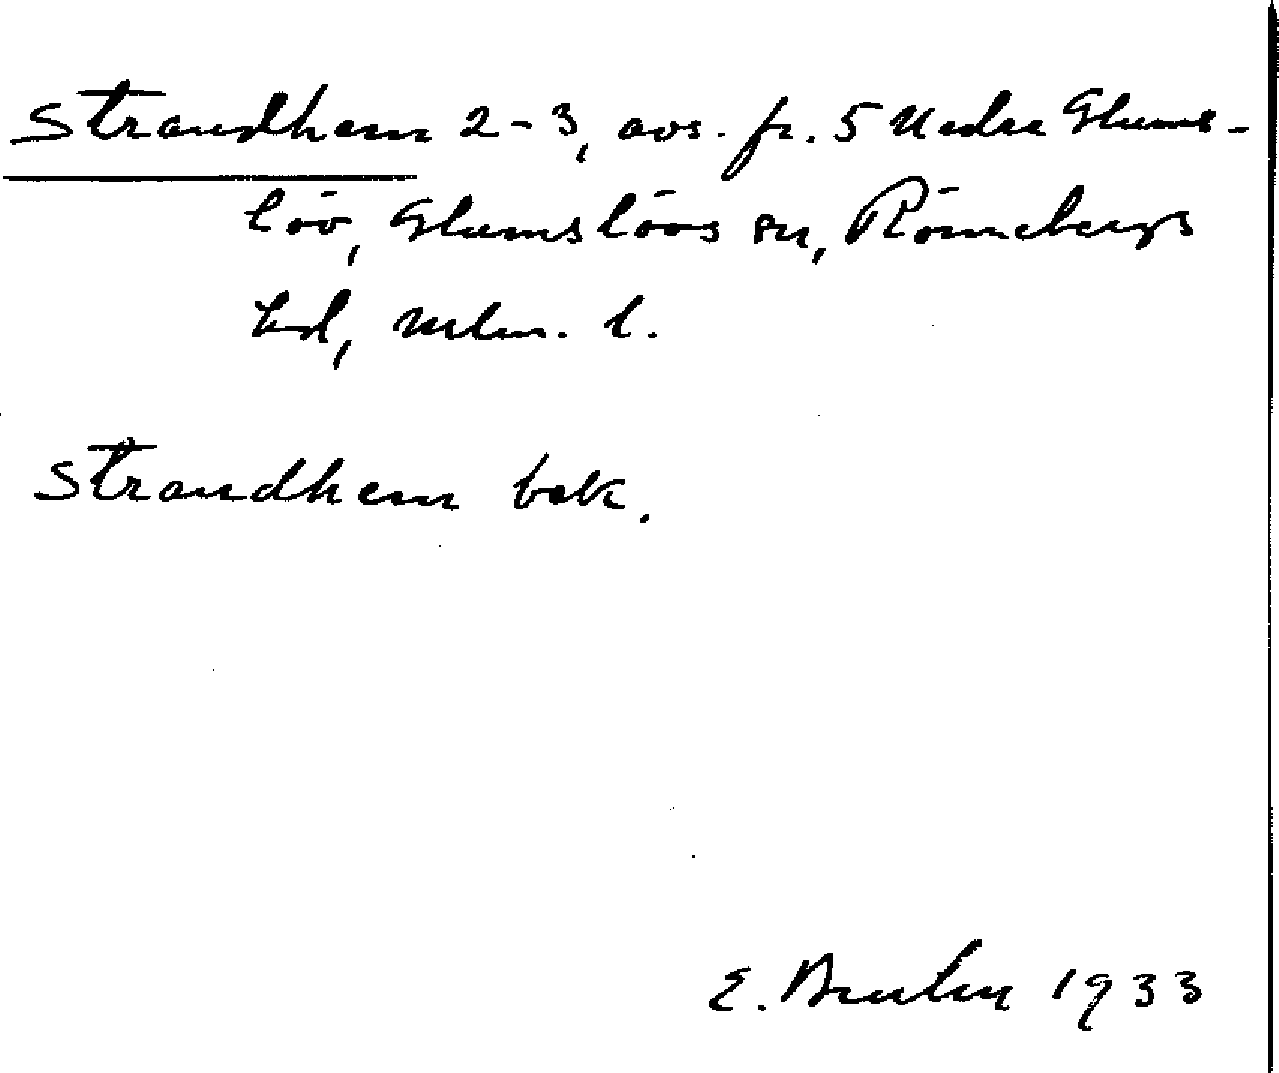 Strandhem 2-3, avs. fr. 5 Nedre Glums-
löv, Glumslövs sn, Rönnebergs
hd, Mlm. l.
Strandhem bek.
E. 1933